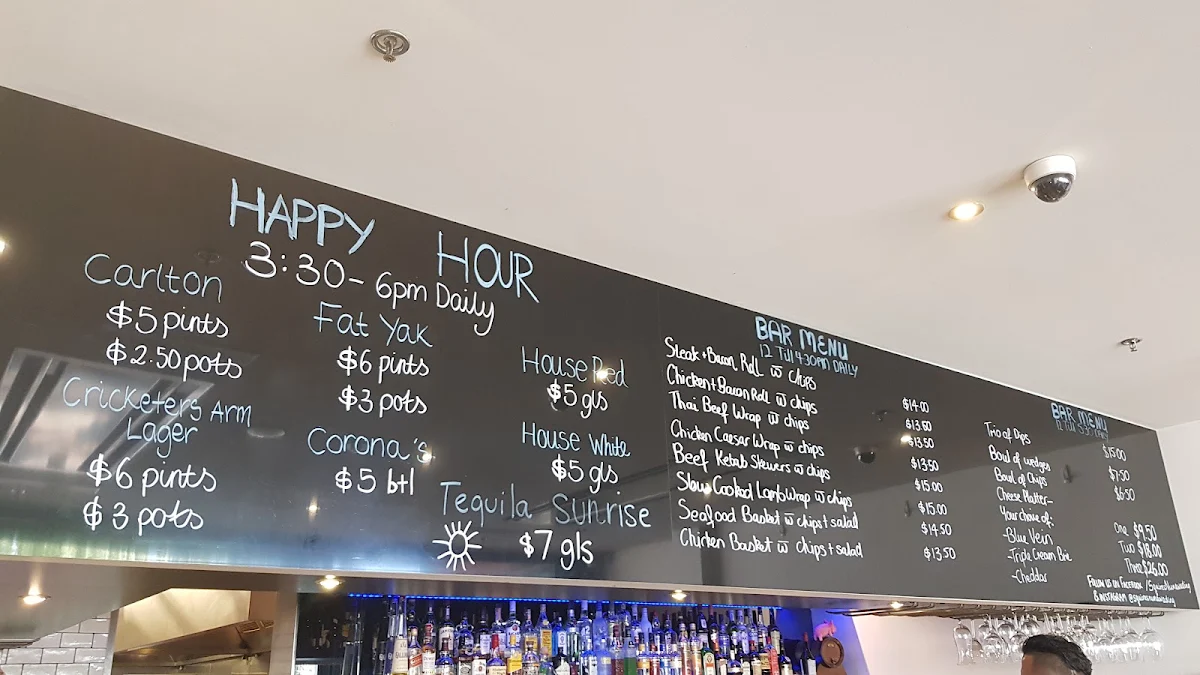 HAPPY HOUR
3:30- 6pm Daily
Carlton
$5 pints
$2.50 pots
Cricketers Arm
Lager
$6 pints
$3 pots
Fat Yak
$6 pints
$3 pots
Corona's
$5 btl
House Red
$5 gls
House White
$5 gls
Tequila Sunrise
$7 gls
BAR MENU
12 Till 4:30PM DAILY
Steak + Bacon Roll w chips $14.00
Chicken + Bacon Roll w chips $13.50
Thai Beef Wrap w chips $13.50
Chicken Caesar Wrap w chips $13.50
Beef Kebab Skewers w chips $15.00
Slow Cooked Lamb Wrap w chips $15.00
Seafood Basket w chips + salad $14.50
Chicken Basket w chips + salad $13.50
BAR MENU
Trio of Dips $15.00
Bowl of wedges $7.50
Bowl of Chips $6.50
Cheese Platter-
Your choice of:
-Blue Vein one $9.50
-Triple Cream Brie Two $18.00
-Cheddar Three $26.00
FOLLOW US ON FACEBOOK
& INSTAGRAM